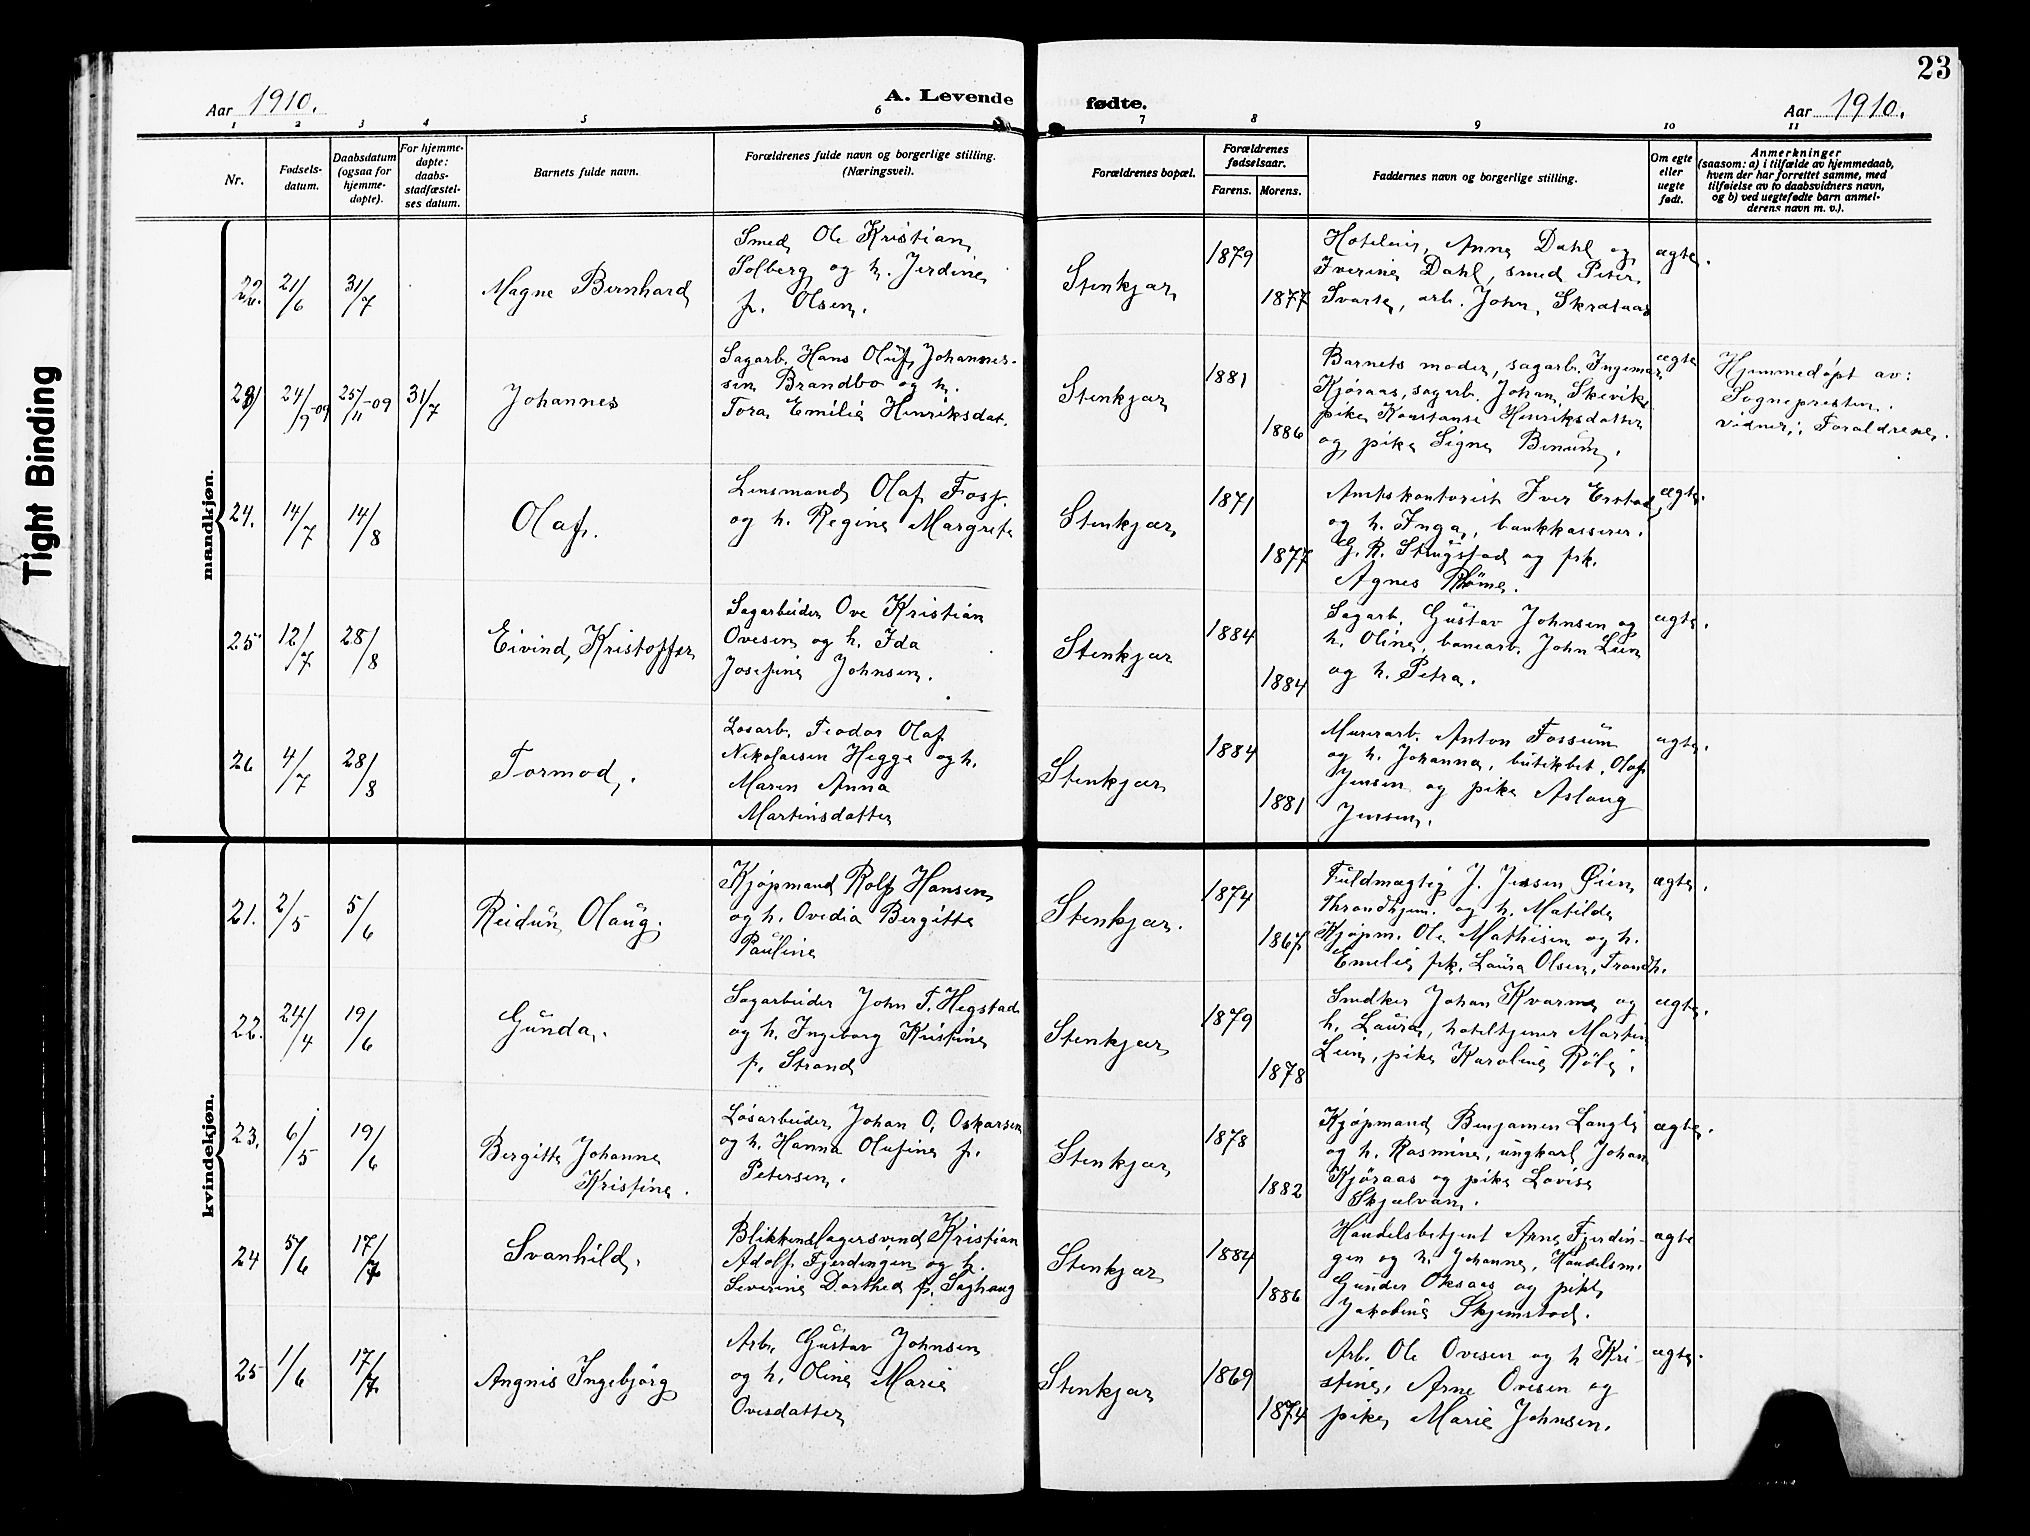 23
Aar 1910.
A. Levende fødte.
Aar 1910.
1 2 3 4 5 6 7 8 9 10 11
Nr.
Fødsels-
datum.
Daabsdatum
(ogsaa for
hjemme-
døpte).
For hjemme-
døpte:
daabs-
stadfæstel-
ses datum.
Barnets fulde navn.
Forældrenes fulde navn og borgerlige stilling.
(Næringsvei).
Forældrenes bopæl.
Forældrenes
fødselsaar.
Farens. Morens.
Faddernes navn og borgerlige stilling.
Om egte
eller
uegte
født.
Anmerkninger
(saasom: a) i tilfælde av hjemmedaab,
hvem der har forrettet samme, med
tilføielse av to daabsvidners navn,
og b) ved uegtefødte barn anmel-
derens navn m. v.).
Tight Binding
mandkjøn.
22. 21/6 31/7
Magne Bernhard
Smed Ole Kristian
Solberg og h. Jerdine
f. Olsen.
Stenkjær
1879
1877
Anna Dahl og
Iverine Dahl, smed Peter
Svarte, arb. John Skrataas
ægte.
23 24/9-09 25/11-09 31/7
Johannes
Sagarb. Hans Oluf Johannes-
sen Brandbo og h.
Tora Emilie Henriksdat.
Stenkjær
1881
1886
Barnets moder, sagarb. Ingemar
Kjøraas, sagarb. Johan Skevik
pike Konstanse Henriksdatter
og pike Signe Binum.
ægte
Hjemmedøpt av:
Sognepresten.
vidner: Forældrene.
24. 14/7 14/8
Olaf.
Lensmand Olaf Fosf.
og h. Regine Margrete
Stenkjær
1871
1877
Amtskontorist Iver Erstad
og h. Inga, bankkasserer
G. R. Strugstad og frk.
Agnes
ægte.
25 12/7 28/8
Eivind Kristoffer
Sagarbeider Ove Kristian
Ovesen og h. Ida
Josefine Johnsen.
Stenkjær
1884
1884
Sagarb. Gustav Johnsen og
h. Oline, banearb. John Lein
og h. Petra.
ægte.
26 4/7 28/8
Tormod.
Løsarb. Teodor Olaf
Nikolaisen Hegge og h.
Maren Anna
Martinsdatter
Stenkjær
1884
1881
Murerarb. Anton Fossum
og h. Johanna, butikbet. Olaf
Jensen og pike Aslaug
Jensen.
ægte.
kvindekjøn.
21. 2/5 5/6
Reidun Olaug.
Kjøpmand Rolf Hansen
og h. Ovedia Bergitte
Pauline
Stenkjær.
1874
1867
Fuldmægtig J. Jensen Øien
Throndhjem. og h. Matilde
Kjøpm. Ole Mathisen og h.
Emelie, frk. Laura Olsen, Trondh.
ægte.
22. 24/4 19/6
Gunda.
Sagarbeider John T. Hegstad
og h. Ingeborg Kristine
f. Strand
Stenkjær
1879
1878
Snedker Johan Kvarme og
h. Laura, hoteltjener Martin
Lein, pike Karoline Røli.
ægte.
23. 6/5 19/6
Bergitte Johanne
Kristine.
Løsarbeider Johan O. Oskarsen
og h. Hanna Olufine f.
Petersen.
Stenkjær
1878
1882
Kjøpmand Benjamen Langli
og h. Rasmine, ungkarl Johan
Kjøraas og pike Lovise
Skjælvan.
ægte.
24 5/6 17/7
Svanhild.
Blikkenslagersvend Kristian
Adolf Fjerdingen og h.
Severine Dorthea f. Saghaug
Stenkjær
1884
1886
Handelsbetjent Arne Fjerdin-
gen og h. Johanne, Handelsm.
Gunder Oksaas og pike
Jakobine Skjemstad.
ægte
25 1/6 17/7
Angnis Ingebjørg
Arb. Gustav Johnsen
og h. Oline Marie
Ovesdatter
Stenkjær
1869
1874
Arb. Ole Ovesen og h Kri-
stine, Arne Ovesen og
pike Marie Johnsen.
ægte.